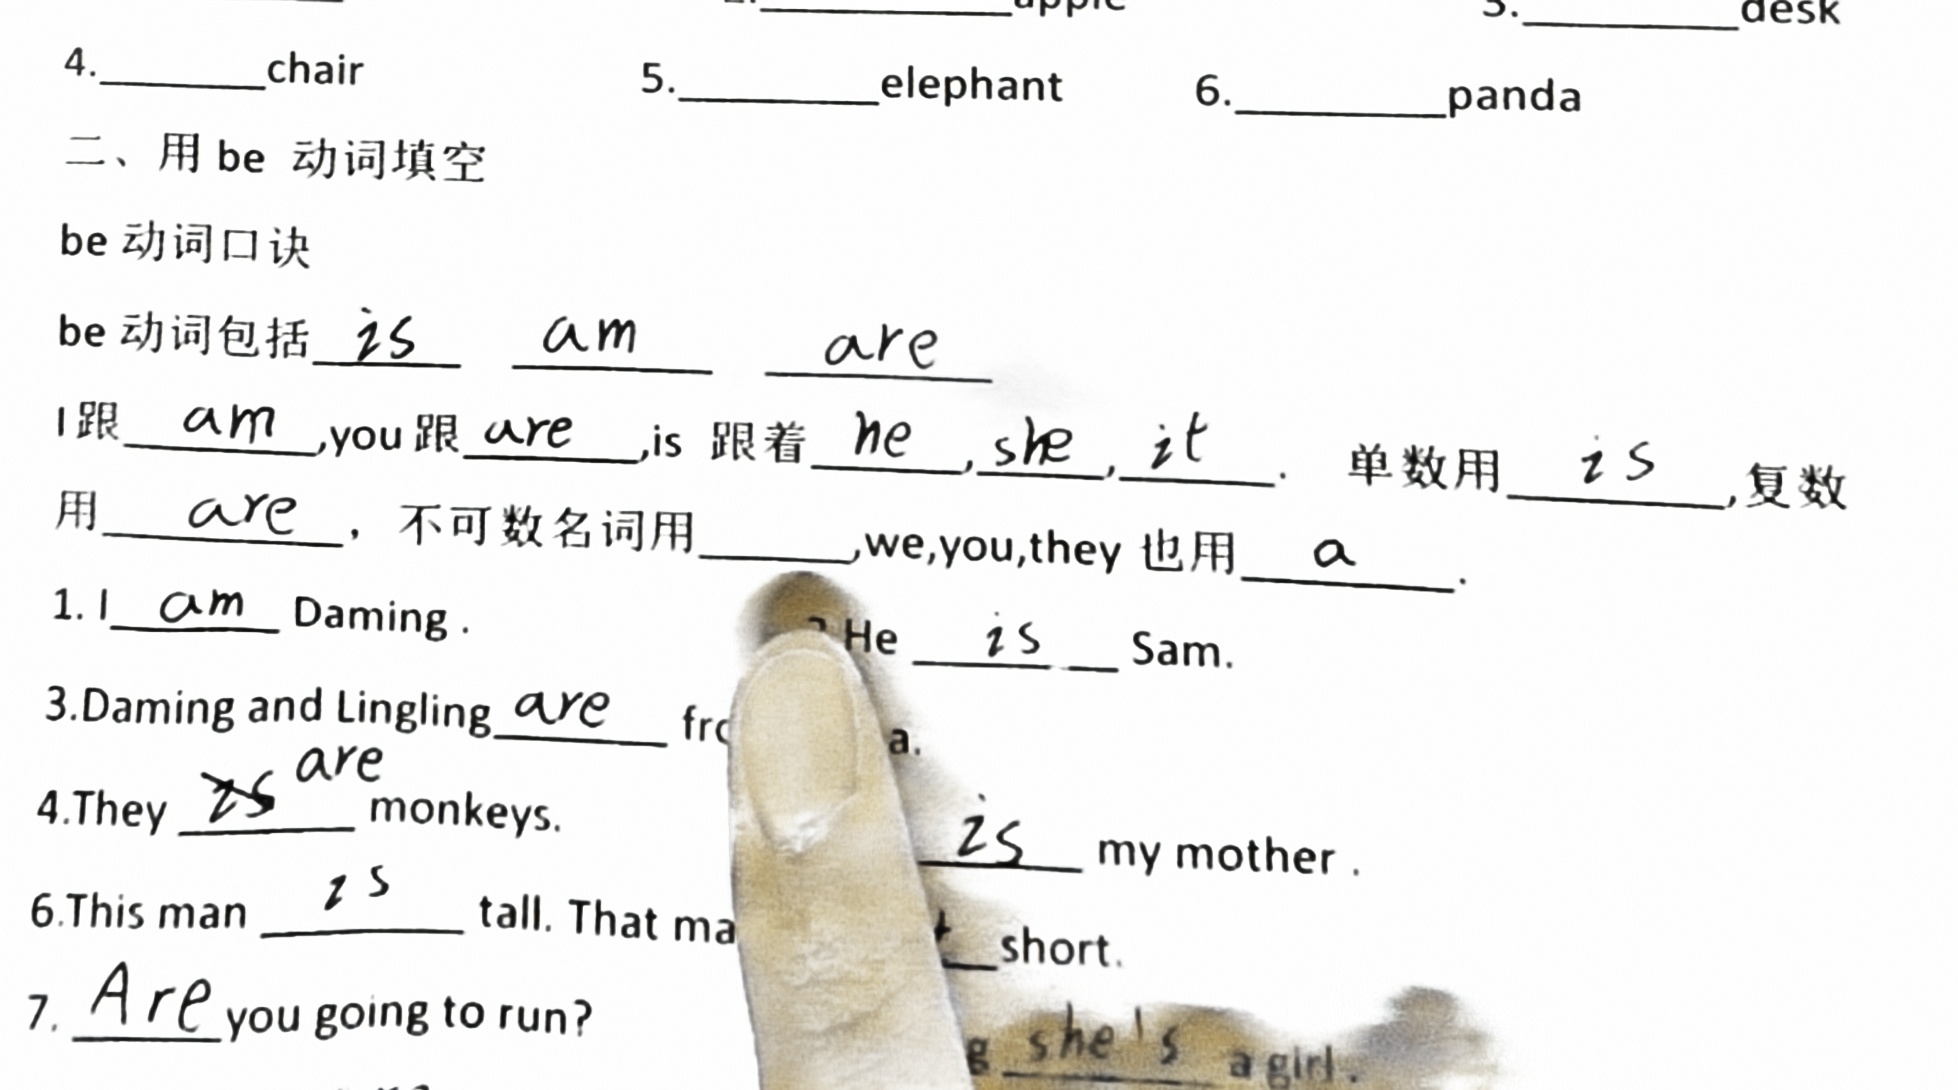 apple 3.________desk
4.________chair 5.________elephant 6.________panda
二、用 be 动词填空
be 动词口诀
be 动词包括 is am are
I 跟 am ,you 跟 are ,is 跟着 he , she , it . 单数用 is ,复数
用 are ，不可数名词用______,we,you,they 也用 a .
1. I am Daming . He is Sam.
3.Daming and Lingling are a.
4.They is are monkeys. is my mother .
6.This man is tall. That short.
7. Are you going to run? she's a girl .